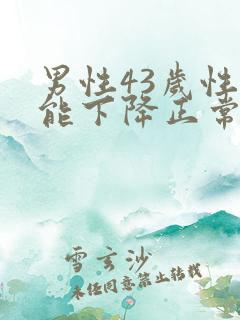 男性43歲性
能下降正常
雪玄沙
未经同意禁止转载